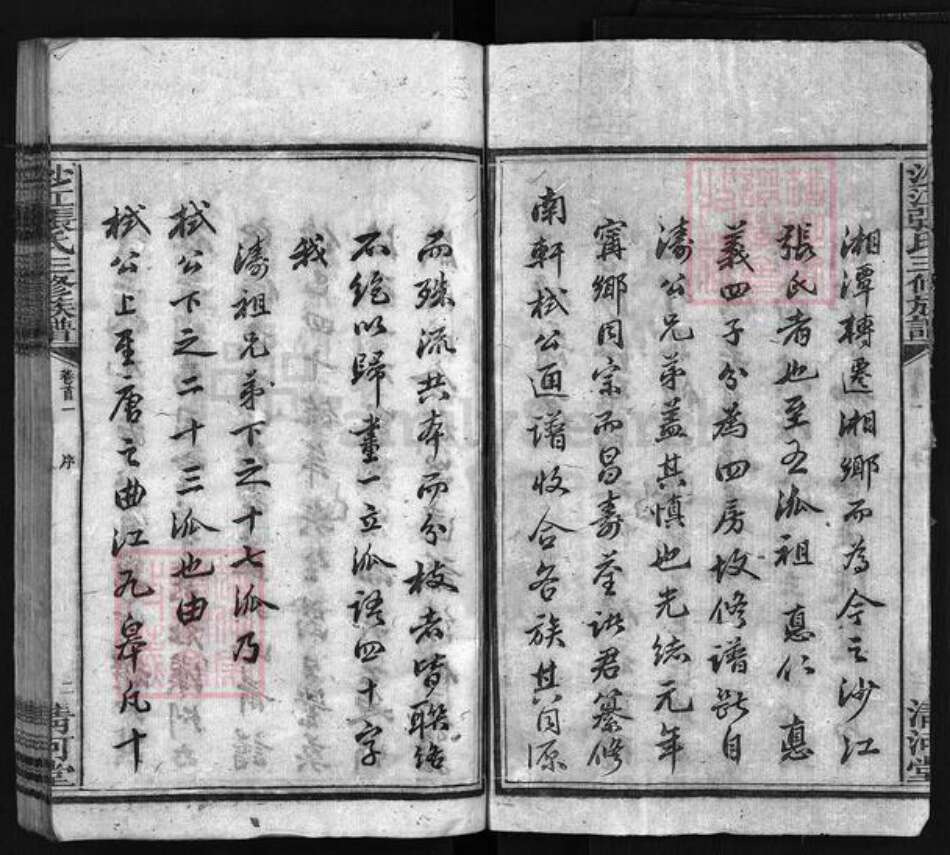 湘潭轉遷湘鄉而為今之沙江
張氏者也至五派祖 惪仁 惪
義四子分為四房故修譜斷自
濤公兄弟蓋其慎也光緒元年
甯鄉同宗而昌壽荃諸君纂修
南軒栻公通譜收合各族其同源
而殊流共本而分枝者皆聯絡
不絕以歸畫一立派語四十字
我
濤祖兄弟下之十七派乃
栻公下之二十三派也由
栻公上至唐之曲江九皋凡十
沙江張氏三修族譜
卷首一
序
二
清河堂
沙江張氏三修族譜
清河堂